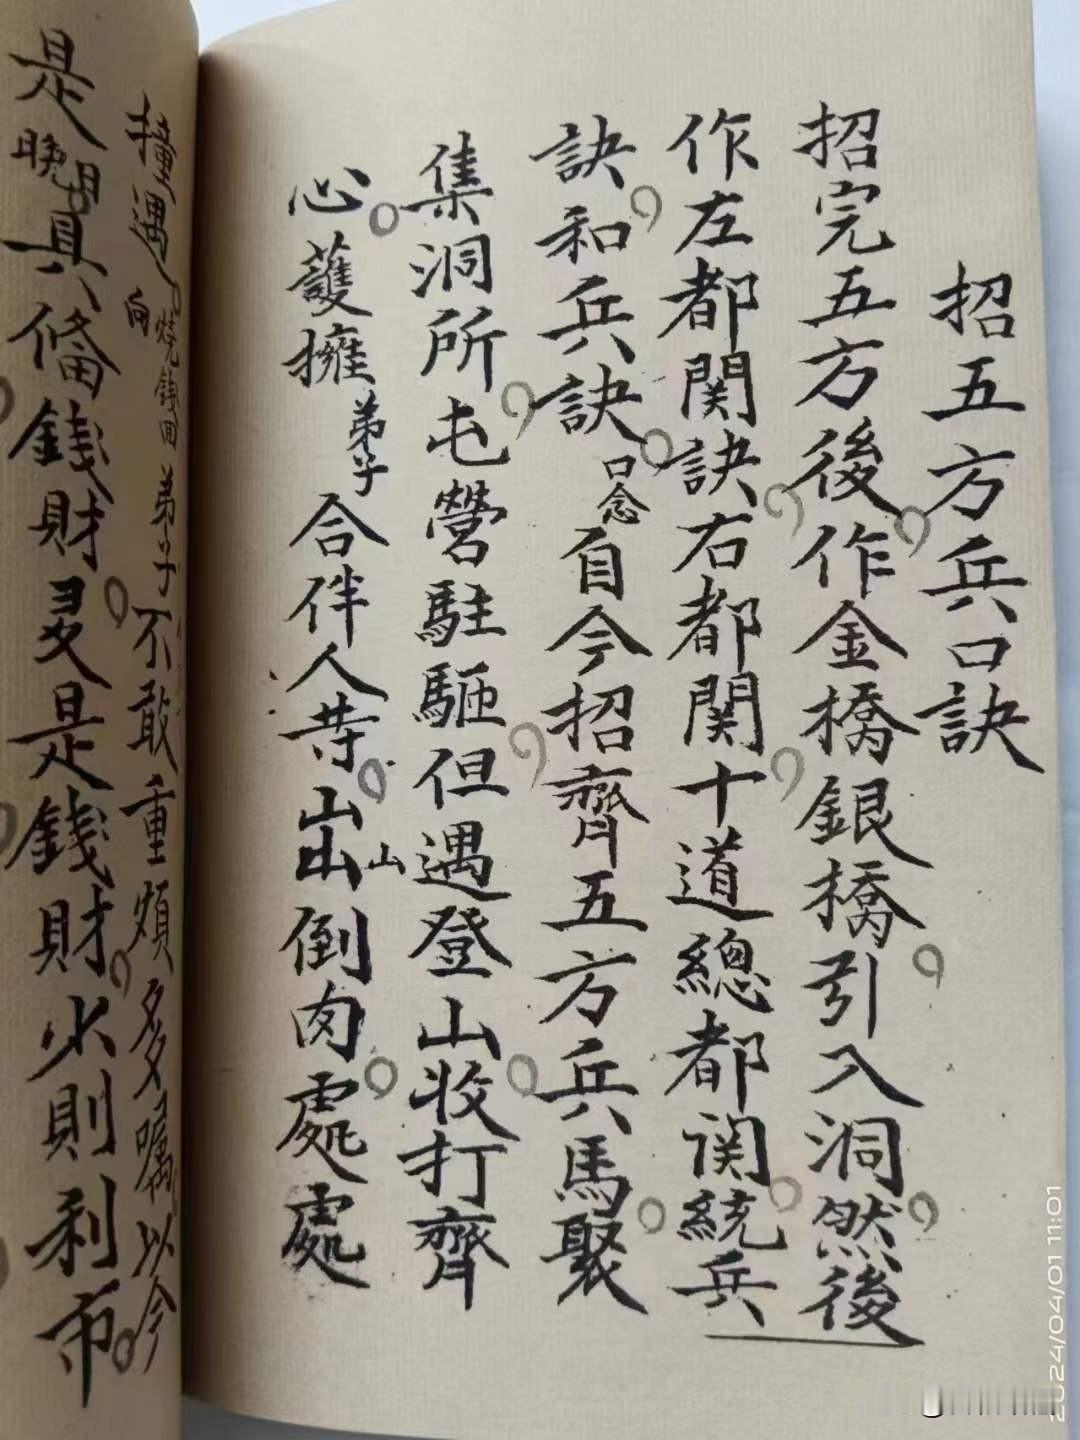 招五方兵口訣
招完五方後作金橋銀橋引入洞然後
作左都関訣右都関十道總都関統兵
訣和兵訣口念自今招齊五方兵馬聚
集洞所屯營駐驅但遇登山收打齊
心護擁弟子合伴人等出山倒肉處處
撞遇向燒錢回弟子不敢重煩多多囑以今
是晚具俻錢財是錢財火則利市
2024/04/01 11:01